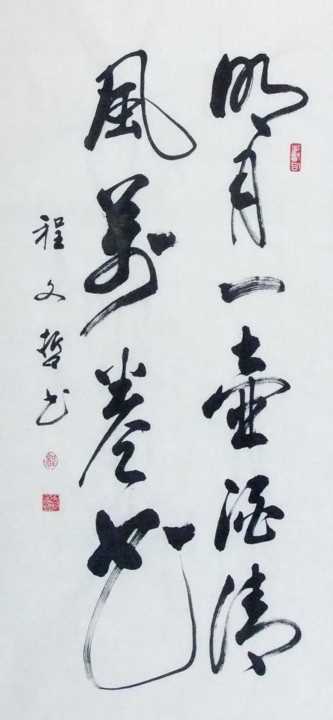 明月一壺酒清
風萬卷書
程文哲书